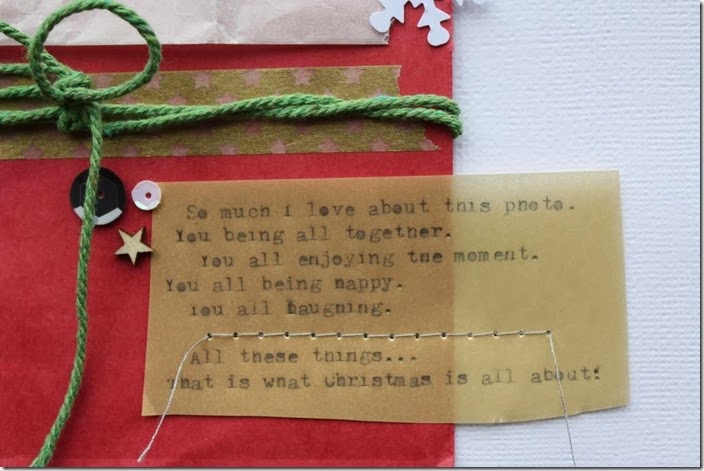 So much I love about this photo.
You being all together.
You all enjoying the moment.
You all being happy.
You all laughing.
All these things...
That is what Christmas is all about!